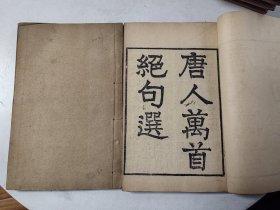 唐人萬首
絕句選